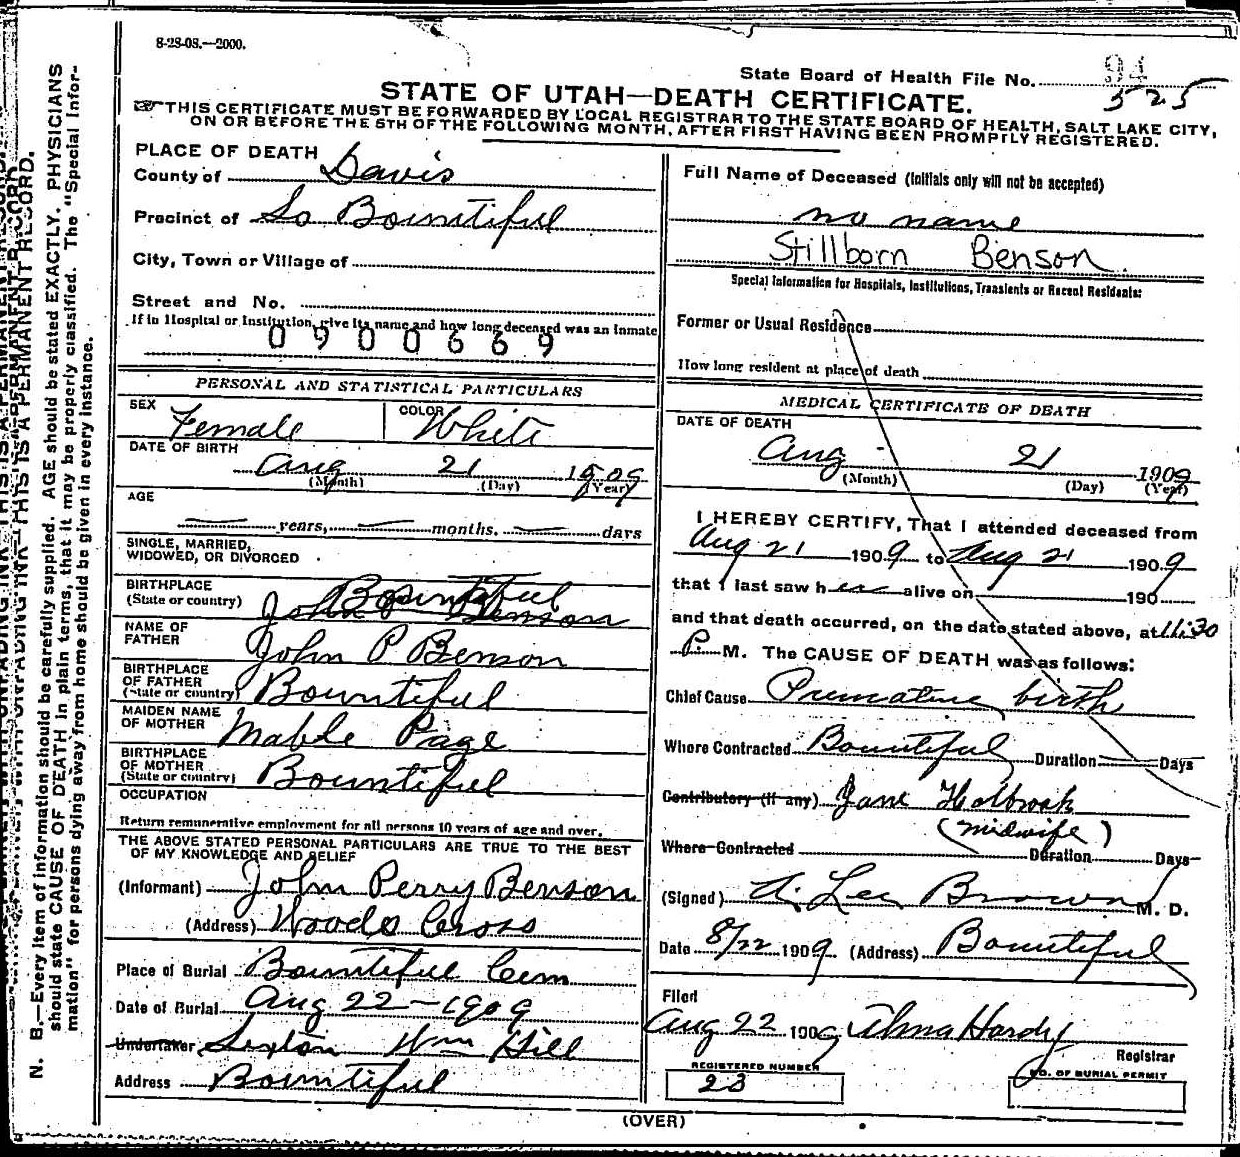 8-28-08.—2000.
State Board of Health File No. 94
525
STATE OF UTAH—DEATH CERTIFICATE.
THIS CERTIFICATE MUST BE FORWARDED BY LOCAL REGISTRAR TO THE STATE BOARD OF HEALTH, SALT LAKE CITY,
ON OR BEFORE THE 5TH OF THE FOLLOWING MONTH, AFTER FIRST HAVING BEEN PROMPTLY REGISTERED.
PLACE OF DEATH
County of Davis
Precinct of So Bountiful
City, Town or Village of
Street and No.
If in Hospital or Institution, give its name and how long deceased was an inmate
0900669
PERSONAL AND STATISTICAL PARTICULARS
SEX Female COLOR White
DATE OF BIRTH
Aug 21 1909
(Month) (Day) (Year)
AGE
years, months. days
SINGLE, MARRIED,
WIDOWED, OR DIVORCED
BIRTHPLACE
(State or country) Bountiful
John P Benson
NAME OF
FATHER John P Benson
BIRTHPLACE
OF FATHER
(State or country) Bountiful
MAIDEN NAME
OF MOTHER Mable Page
BIRTHPLACE
OF MOTHER
(State or country) Bountiful
OCCUPATION
Return remunerative employment for all persons 10 years of age and over.
THE ABOVE STATED PERSONAL PARTICULARS ARE TRUE TO THE BEST
OF MY KNOWLEDGE AND BELIEF
(Informant) John Perry Benson
(Address) Woods Cross
Place of Burial Bountiful Cem
Date of Burial Aug 22—1909
Undertaker Sexton Wm Hill
Address Bountiful
Full Name of Deceased (Initials only will not be accepted)
no name
Stillborn Benson
Special Information for Hospitals, Institutions, Transients or Recent Residents:
Former or Usual Residence
How long resident at place of death
MEDICAL CERTIFICATE OF DEATH
DATE OF DEATH
Aug 21 1909
(Month) (Day) (Year)
I HEREBY CERTIFY, That I attended deceased from
Aug 21 1909 to Aug 21 1909
that I last saw her alive on 190
and that death occurred, on the date stated above, at 11:30
P. M. The CAUSE OF DEATH was as follows:
Chief Cause Premature birth
Where Contracted Bountiful Duration Days
Contributory (if any) Jane Holbrook
(midwife)
Where Contracted Duration Days
(Signed) Lee Brown M. D.
Date 8/22 1909 (Address) Bountiful
Filed
Aug 22 1909 Alma Hardy
Registrar
REGISTERED NUMBER
23
NO. OF BURIAL PERMIT
(OVER)
THIS IS A PERMANENT RECORD.
N. B.—Every item of information should be carefully supplied. AGE should be stated EXACTLY. PHYSICIANS
should state CAUSE OF DEATH in plain terms, that it may be properly classified. The "Special Infor-
mation" for persons dying away from home should be given in every instance.